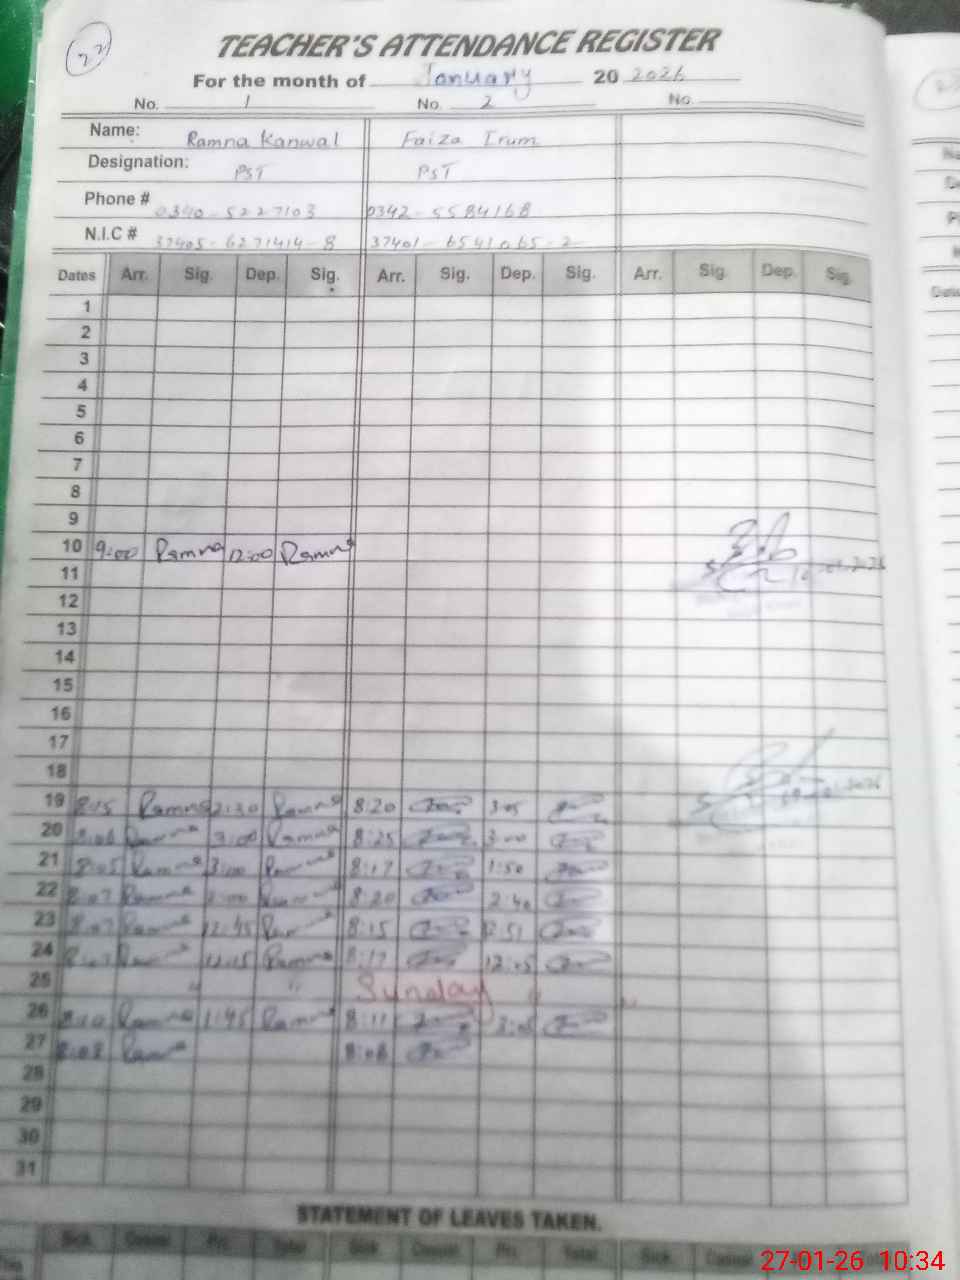 22
TEACHER'S ATTENDANCE REGISTER
For the month of January 20 2026
No. 1 No. 2 No.
Name: Ramna Kanwal Faiza Irum
Designation: PST PST
Phone # 0340-5227103 0342-5584168
N.I.C # 37405-6271414-8 37401-6541065-2
Dates Arr. Sig. Dep. Sig. Arr. Sig. Dep. Sig. Arr. Sig. Dep. Sig.
1
2
3
4
5
6
7
8
9
10 9:00 Ramna 12:00 Ramna
11
12
13
14
15
16
17
18
19 8:15 Ramna 2:30 Ramna 8:20 3:05
20 Ramna 3:00 Ramna 8:25 3:00
21 8:05 Ramna 3:00 Ramna 8:17 1:50
22 8:07 Ramna Ramna 8:20 2:40
23 8:07 Ramna 12:45 Ramna 8:15 12:51
24 8:07 Ramna 12:15 Ramna 8:17 12:05
25 " " Sunday " "
26 8:10 Ramna 1:45 Ramna 8:11 3:05
27 8:08 Ramna 8:08
28
29
30
31
STATEMENT OF LEAVES TAKEN.
Sick Casual Total Sick Casual Total Sick Casual
27-01-26 10:34